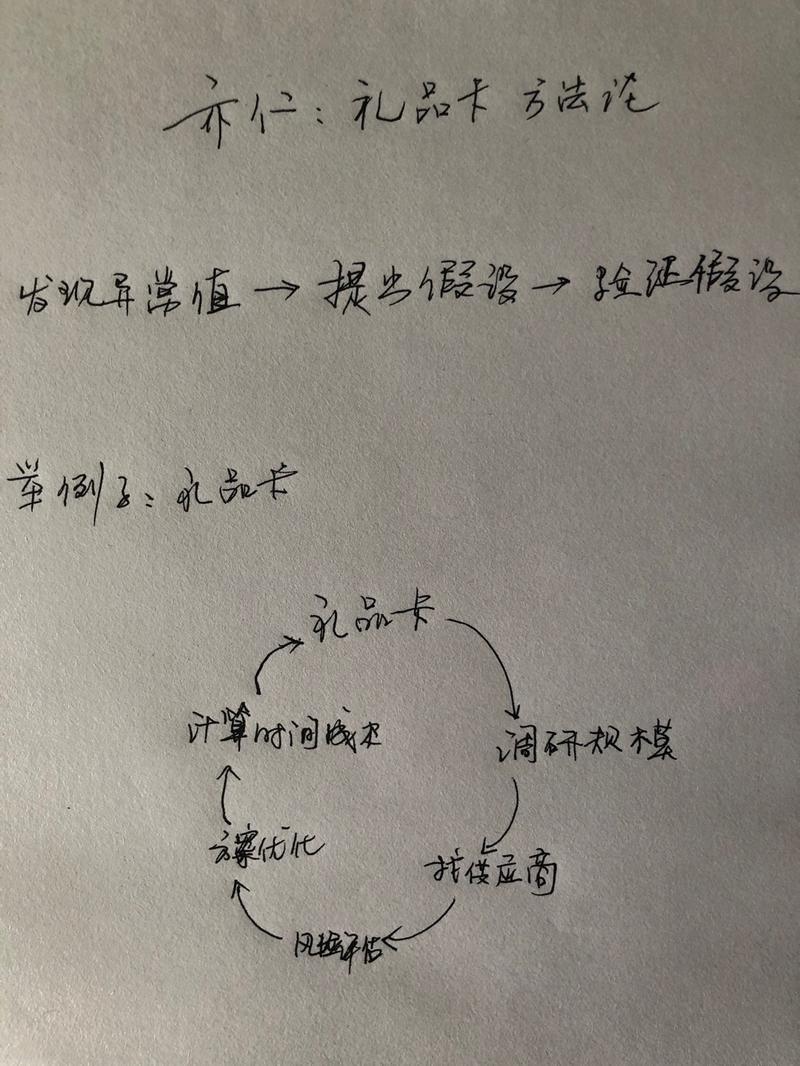 亦仁：礼品卡 方法论
发现异常值→提出假设→验证假设
举例子：礼品卡
礼品卡
调研规模
找供应商
风控评估
方案优化
计算时间成本